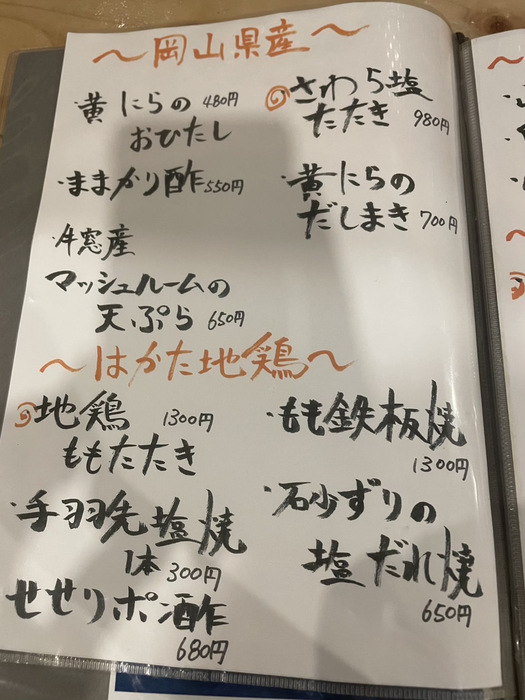 〜岡山県産〜
黄にらの 480円
おひたし
・ままかり酢 550円
牛窓産
マッシュルームの
天ぷら 650円
さわら塩
たたき 980円
・黄にらの
だしまき 700円
〜はかた地鶏〜
地鶏 1300円
ももたたき
・手羽先塩焼
1本 300円
せせりポン酢
680円
・もも鉄板焼
1300円
・砂ずりの
塩だれ焼
650円